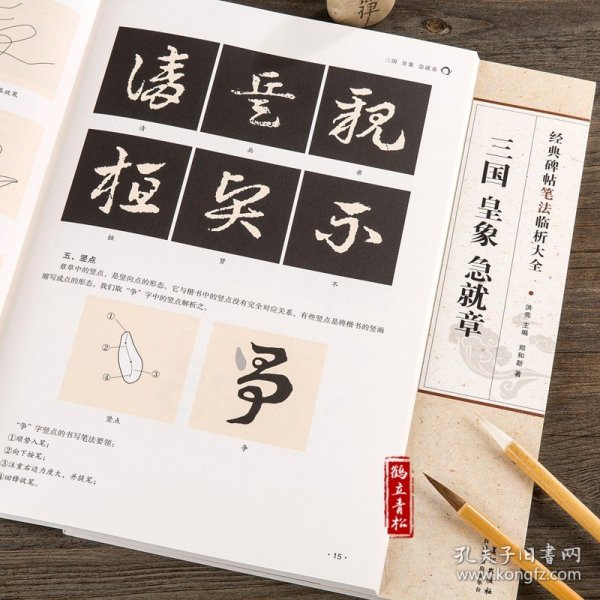 三国 皇象 急就章
清
兵
亲
桓
贤
不
五、竖点
章草中的竖点，是竖向点的形态。它与楷书中的竖点没有完全对应关系，有些竖点是将楷书的竖画
缩写成点的形态。我们取“争”字中的竖点解析之。
①
②
③
④
竖点
争
“争”字竖点的书写笔法要领：
①顺势入笔；
②向下按笔；
③注重右边力度大，并提笔；
④回锋收笔。
·15·
经典碑帖笔法临析大全
三国 皇象 急就章
洪亮 主编 郑和新 著
鹤立青松
孔夫子旧书网
www.kongfz.com